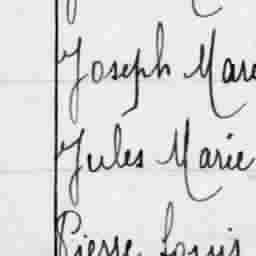 Joseph Mari
Jules Marie
Pierre Louis